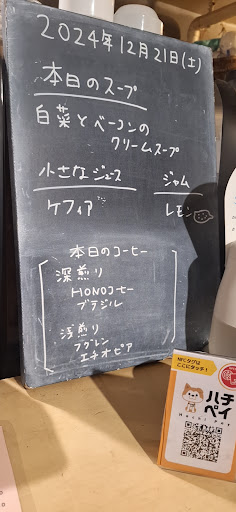 2024年12月21日(土)
本日のスープ
白菜とベーコンの
クリームスープ
小さなジュース
ケフィア
ジャム
レモン
本日のコーヒー
深煎り
HONOコーヒー
ブラジル
浅煎り
フグレン
エチオピア
NFCタグは
ここにタッチ!
ハチ
ペイ